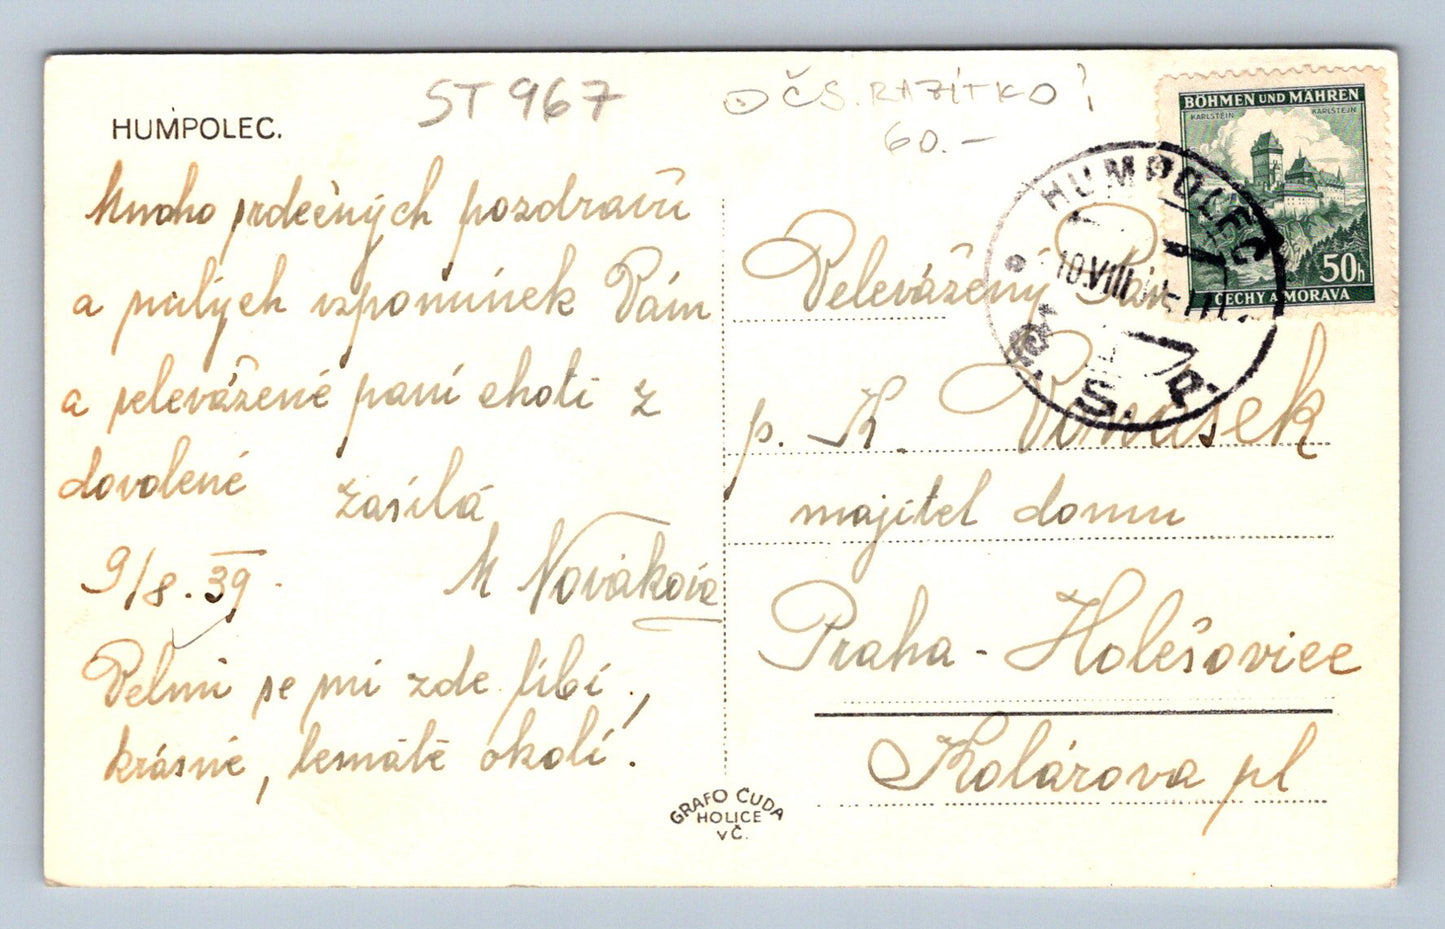 HUMPOLEC.
ST 967
ČS. RAZÍTKO!
60.-
Mnoho srdečných pozdravů
a milých vzpomínek Vám
a velevážené paní choti z
dovolené zasílá
9/8. 39. M Nováková
Velmi se mi zde líbí,
krásné, lesnaté okolí.
BÖHMEN UND MÄHREN
KARLSTEIN KARLŠTEJN
50h
ČECHY A MORAVA
HUMPOLEC
10.VIII
Č.S.P.
Velevážený Pán
p. K.
majitel domu
Praha - Holešovice
Kolárova pl
GRAFO ČUDA
HOLICE
V Č.